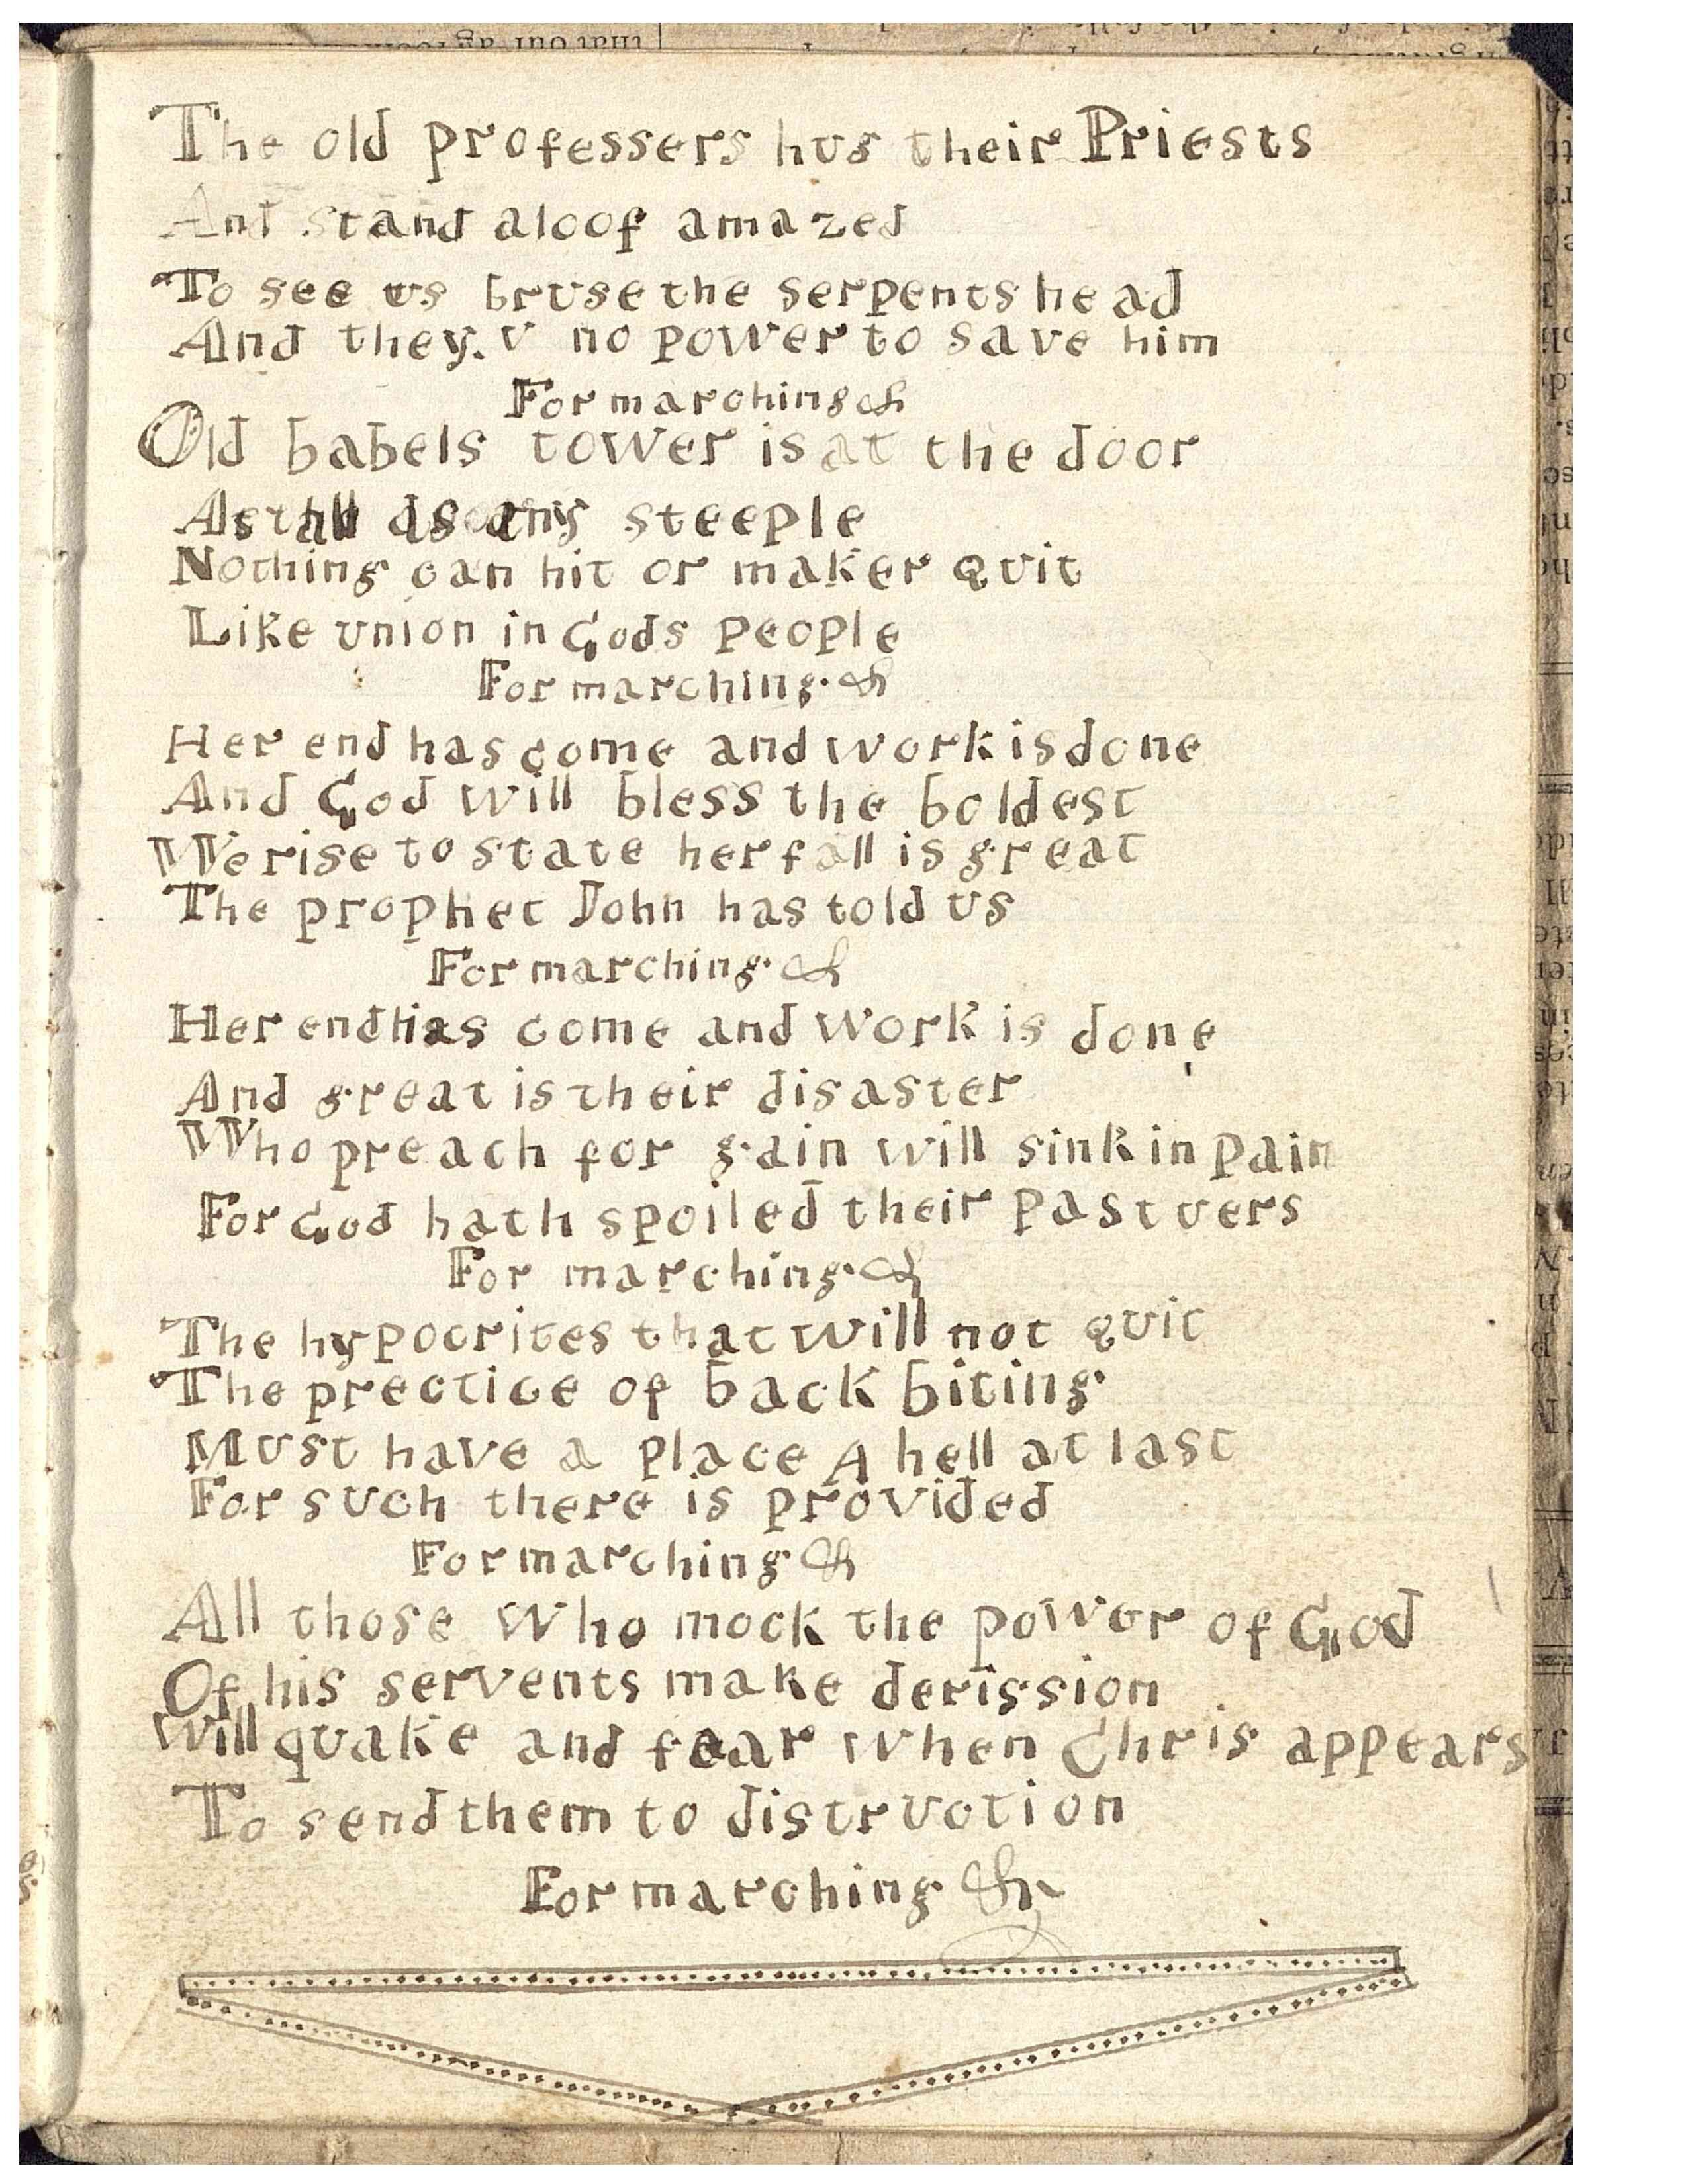 The old professers hug their Priests
And stand aloof amazed
To see us bruse the serpents head
And they.v no power to save him
For marching &
Old babels tower is at the door
As tall as any steeple
Nothing can hit or maker quit
Like union in Gods people
For marching &
Her end has come and work is done
And God will bless the boldest
We rise to state her fall is great
The prophet John has told us
For marching &
Her end has come and work is done
And great is their disaster
Who preach for gain will sink in pain
For God hath spoiled their pastuers
For marching &
The hypocrites that will not quit
The prectice of back biting
Must have a place A hell at last
For such there is provided
For marching &
All those who mock the power of God
Of his servents make derission
Will quake and fear when Chris appears
To send them to distruction
For marching &